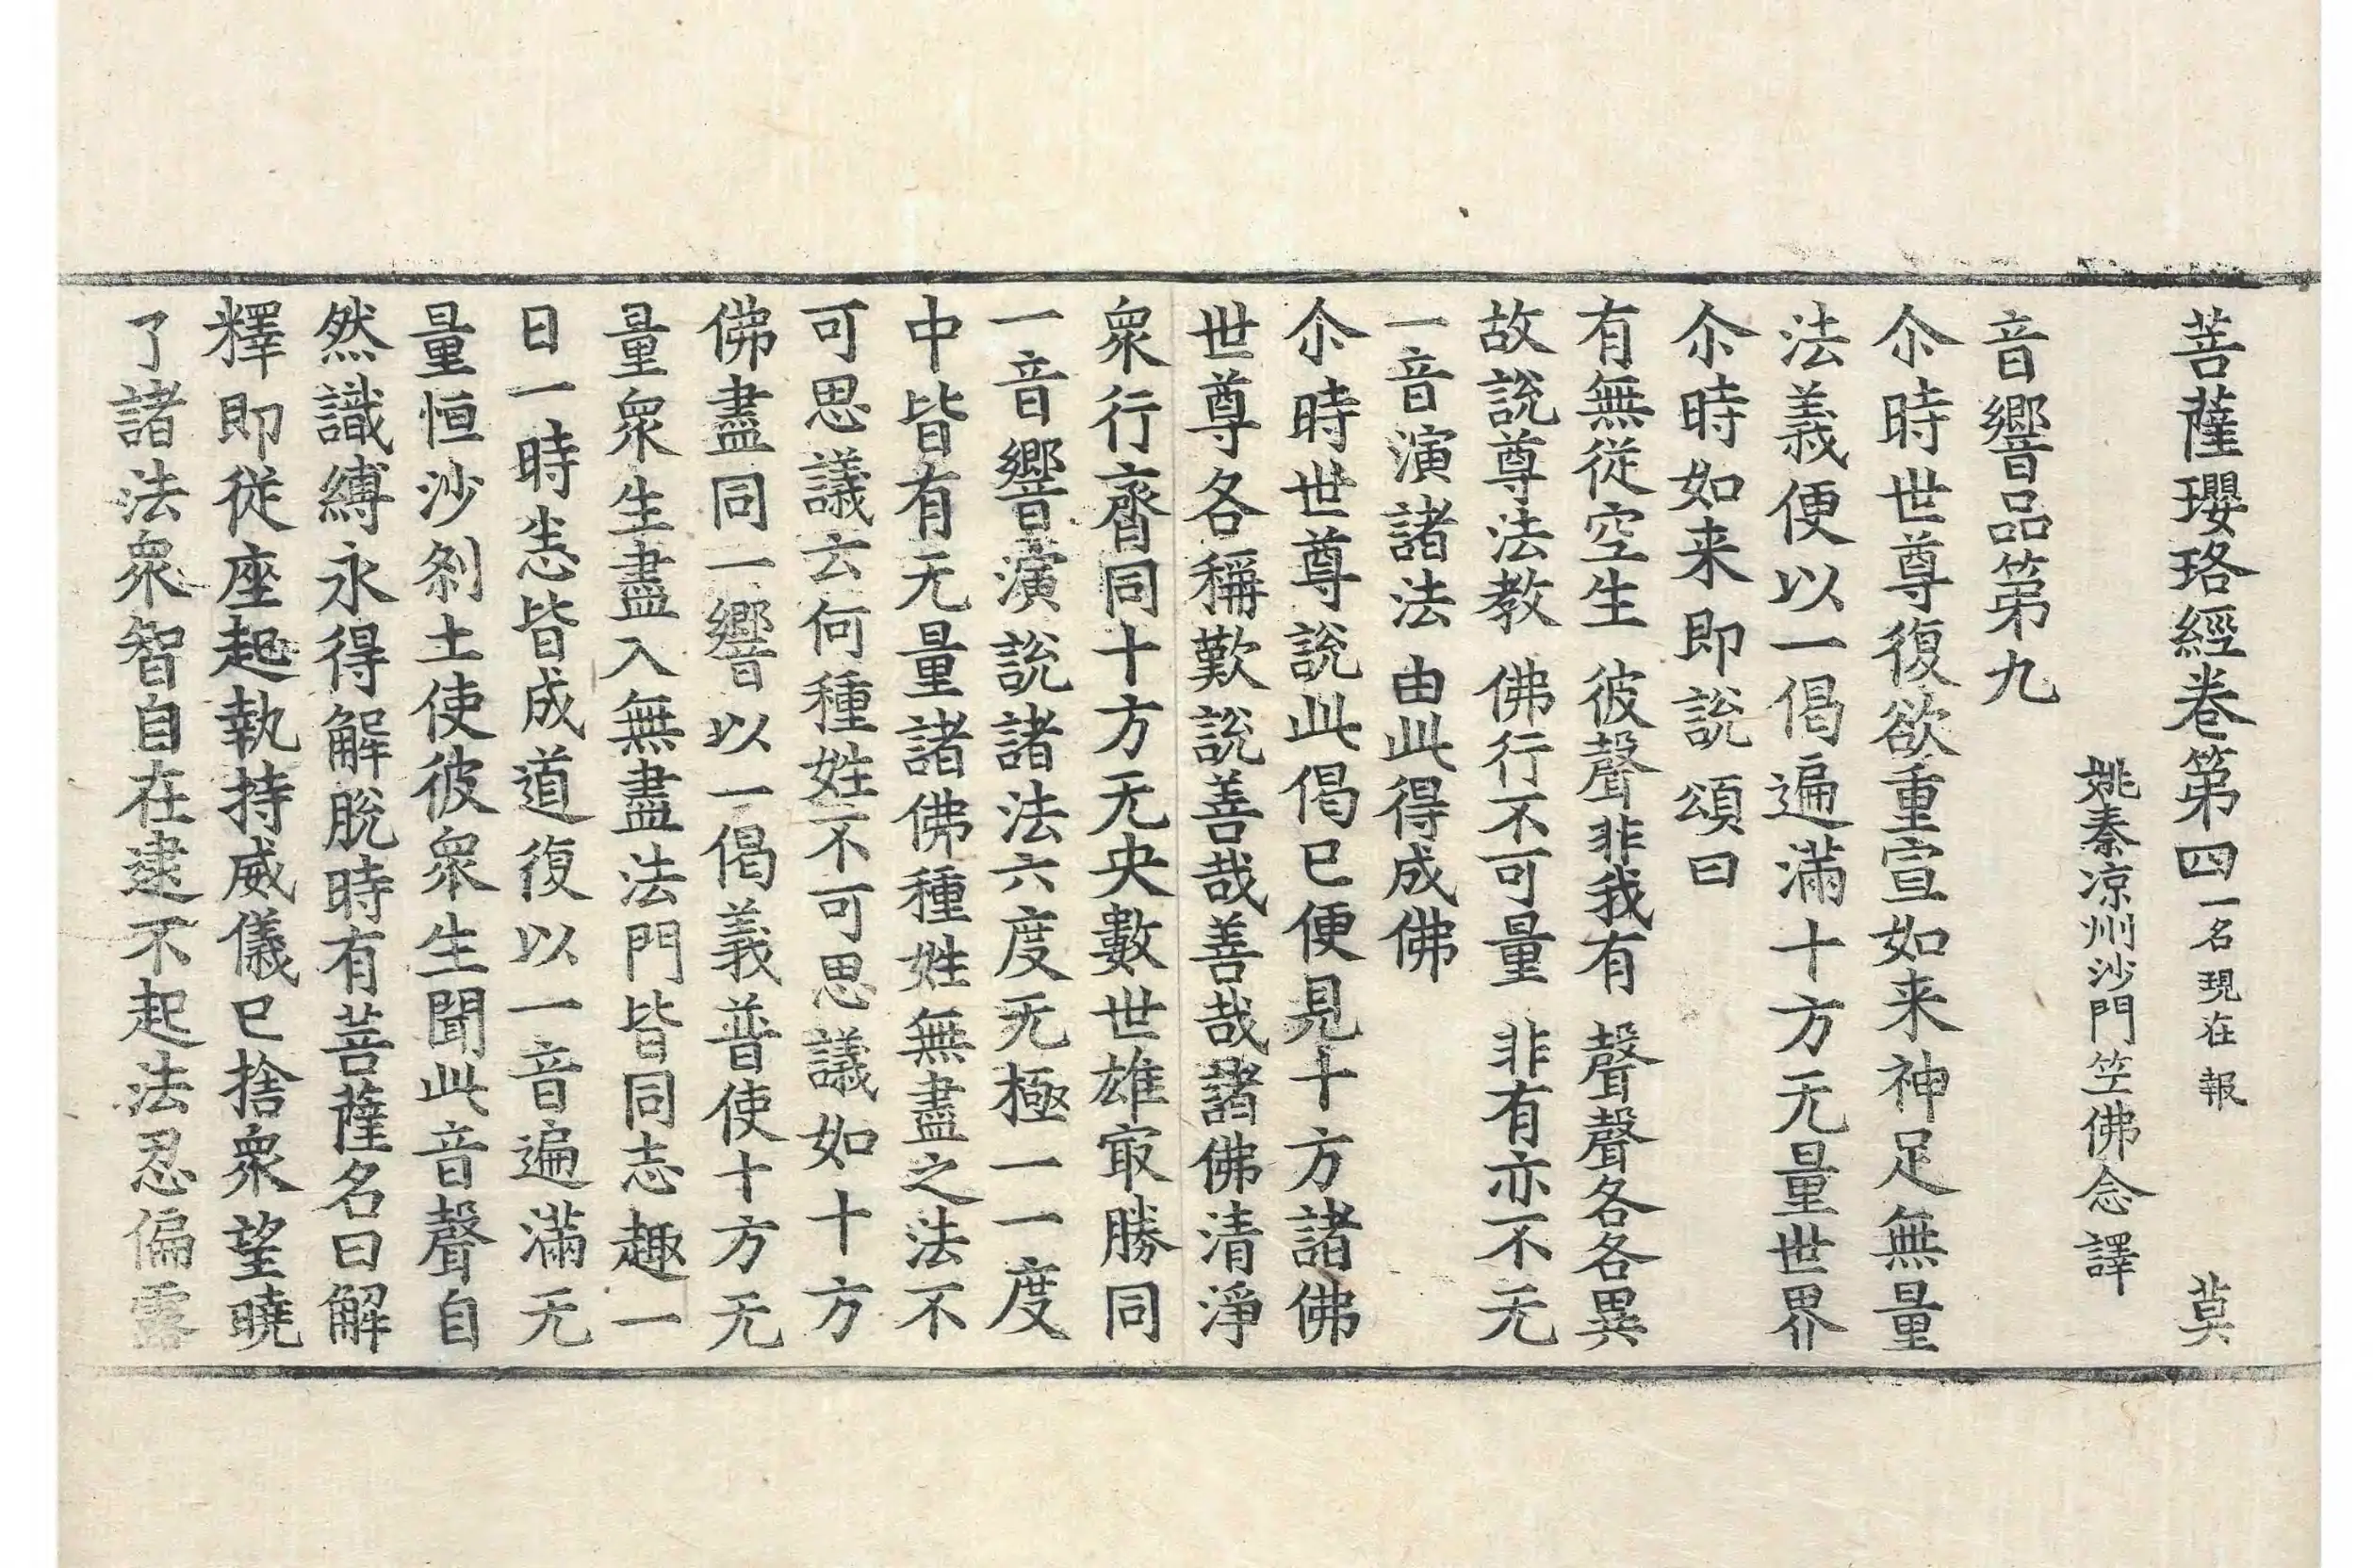 菩薩瓔珞經卷第四一名現在報 莫
姚秦凉州沙門竺佛念譯
音響品第九
尒時世尊復欲重宣如来神足無量
法義便以一偈遍滿十方无量世界
尒時如来即說頌曰
有無從空生 彼聲非我有 聲聲各各異
故說尊法教 佛行不可量 非有亦不无
一音演諸法 由此得成佛
尒時世尊說此偈已便見十方諸佛
世尊各稱歎說善哉善哉諸佛清淨
衆行齊同十方无央數世雄㝡勝同
一音響演說諸法六度无極一一度
中皆有无量諸佛種姓無盡之法不
可思議云何種姓不可思議如十方
佛盡同一響以一偈義普使十方无
量衆生盡入無盡法門皆同志趣一
日一時悉皆成道復以一音遍滿无
量恒沙刹土使彼衆生聞此音聲自
然識縛永得解脫時有菩薩名曰解
釋即從座起執持威儀已捨衆望曉
了諸法衆智自在逮不起法忍偏露